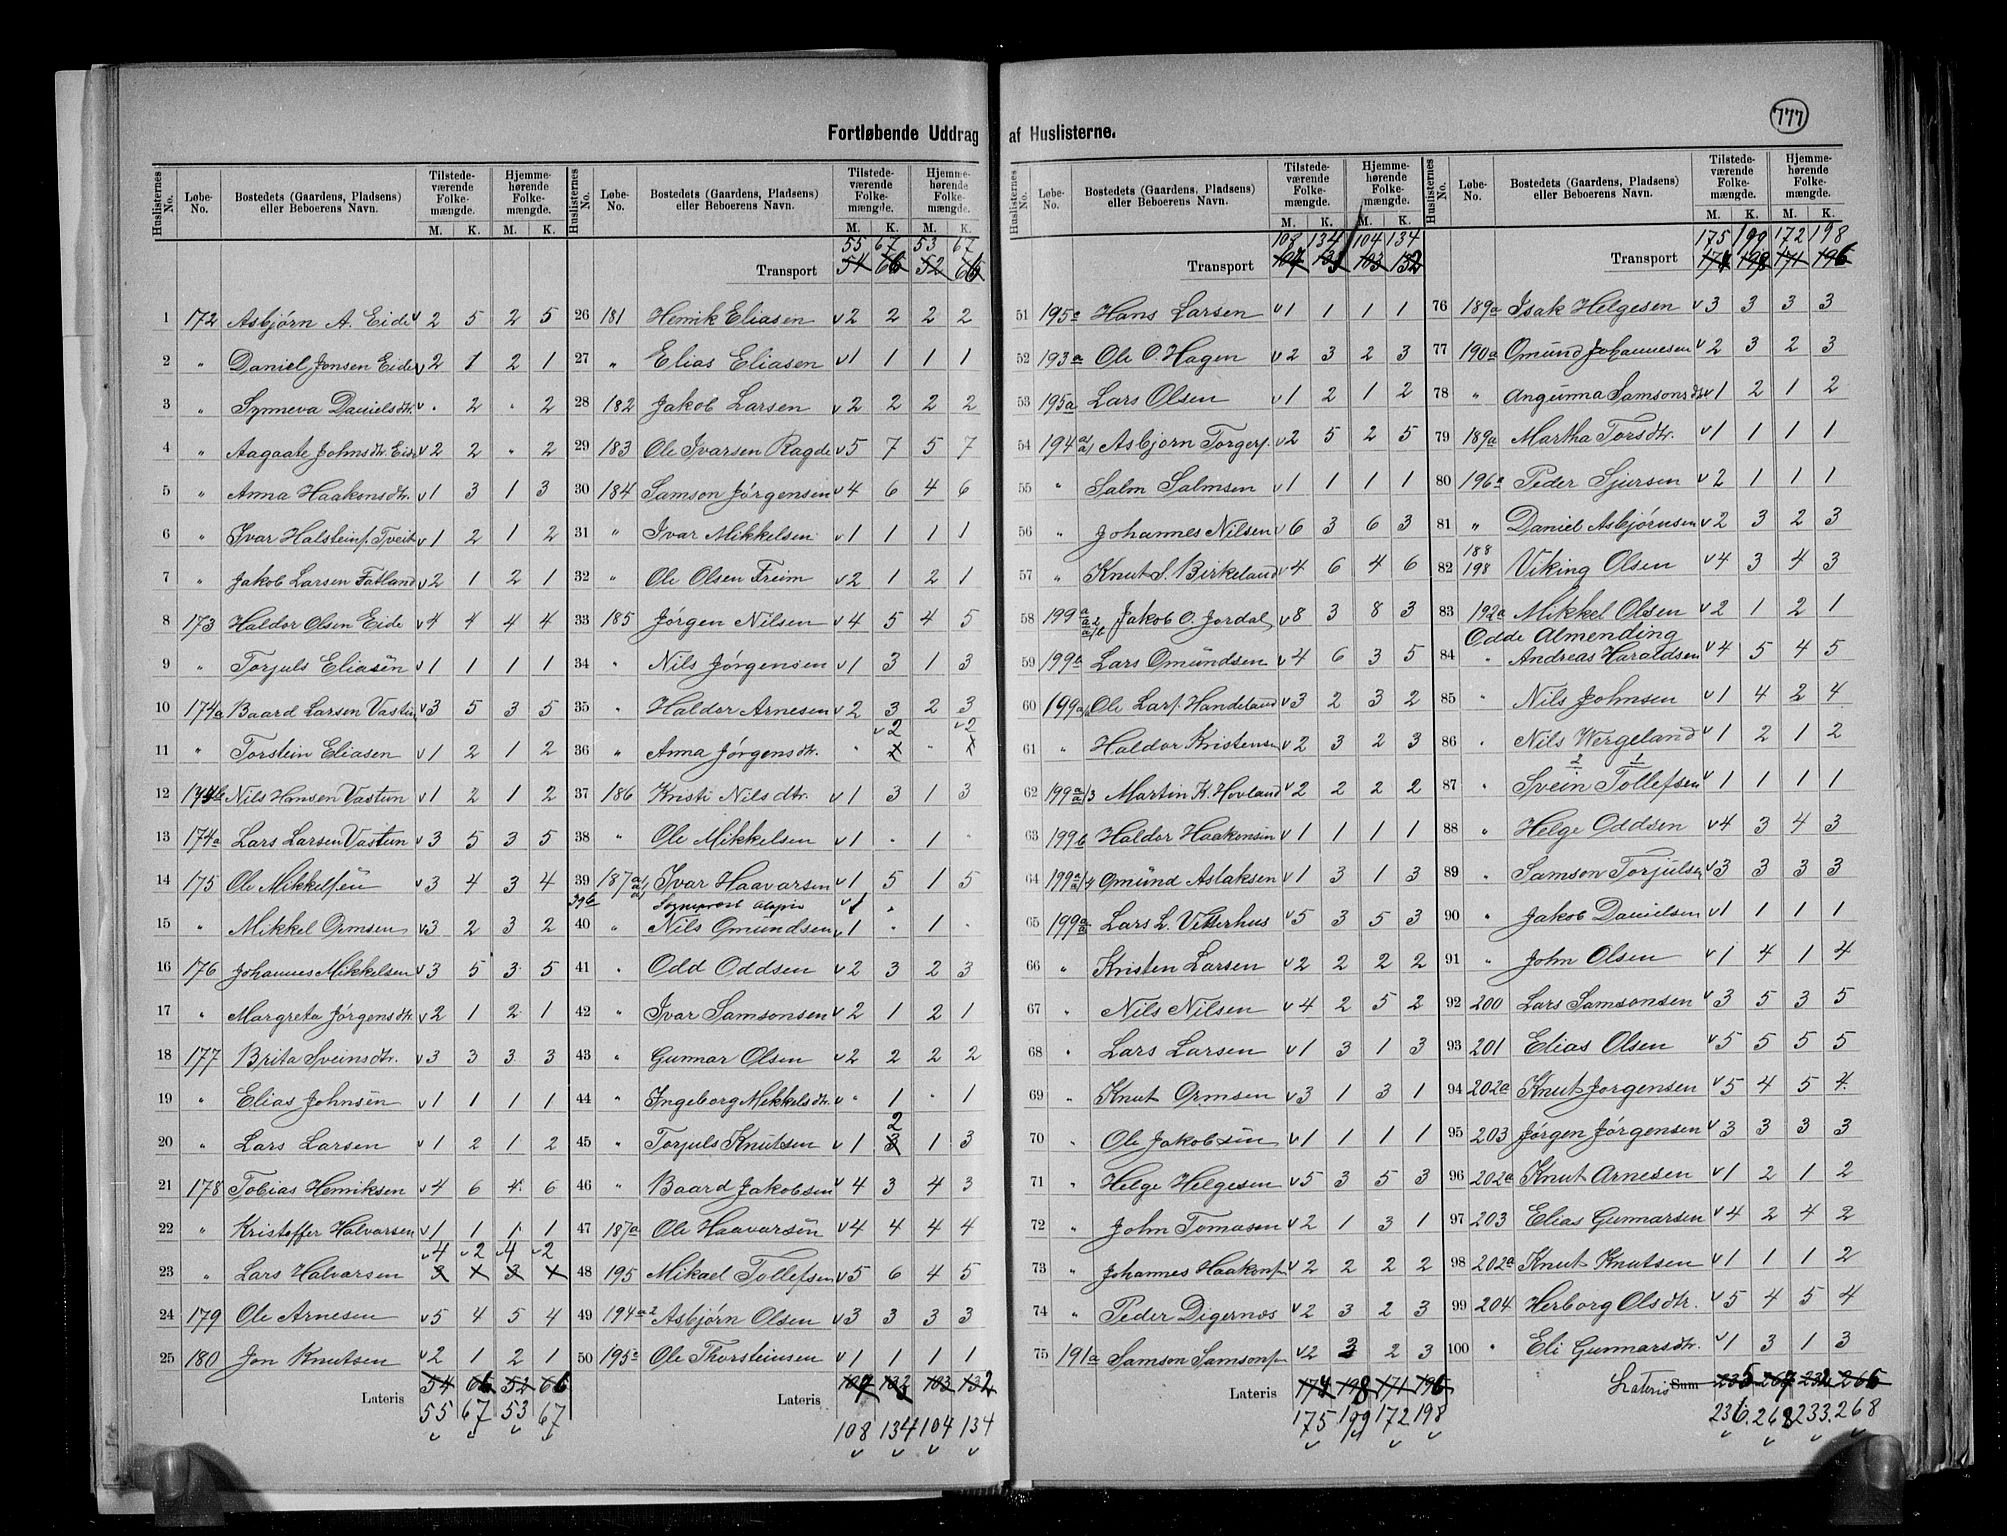 777
Fortløbende Uddrag af Huslisterne.
Huslisternes No. Løbe-No. Bostedets (Gaardens, Pladsens) eller Beboerens Navn. Tilstedeværende Folkemængde. M. K. Hjemmehørende Folkemængde. M. K.
1 172 Asbjørn A. Eide v 2 5 2 5
2 " Daniel Jonsen Eide v 2 1 2 1
3 " Synneva Danielsdtr. v . 2 . 2
4 " Aagaate Johnsdtr. Eide v 2 2 " 2
5 " Anna Haakonsdtr. v 1 3 1 3
6 " Ivar Halsteins. Tveit v 1 2 1 2
7 " Jakob Larsen Fatland v 2 1 2 1
8 173 Haldor Olsen Eide v 4 4 4 4
9 " Torjuls Eliasen v 1 1 1 1
10 174a Baard Larsen Vastun v 3 5 3 5
11 " Torstein Eliasen v 1 2 1 2
12 174b Nils Hansen Vastun v 1 2 1 2
13 174a Lars Larsen Vastun v 3 5 3 5
14 175 Ole Mikkelsen v 3 4 3 4
15 " Mikkel Ormsen v 3 2 3 2
16 176 Johannes Mikkelsen v 3 5 3 5
17 " Margreta Jørgensdtr. v 2 1 2 1
18 177 Brita Sveinsdtr. v 3 3 3 3
19 " Elias Johnsen v 1 1 1 1
20 " Lars Larsen v 1 2 1 2
21 178 Tobias Henriksen v 4 6 4 6
22 " Kristoffer Halvarsen v 1 1 1 1
v 4 v 2 v 4 v 2
23 " Lars Halvarsen 3 x 3 x
24 179 Ole Arnesen v 5 4 5 4
25 180 Jon Knutsen v 2 1 2 1
Lateris 54 66 52 66
55 67 53 67
Huslisternes No. Løbe-No. Bostedets (Gaardens, Pladsens) eller Beboerens Navn. Tilstedeværende Folkemængde. M. K. Hjemmehørende Folkemængde. M. K.
55 67 53 67
Transport 54 66 52 66
26 181 Henrik Eliasen v 2 2 2 2
27 " Elias Eliasen v 1 1 1 1
28 182 Jakob Larsen v 2 2 2 2
29 183 Ole Ivarsen Ragde v 5 7 5 7
30 184 Samson Jørgensen v 4 6 4 6
31 " Ivar Mikkelsen v 1 1 1 1
32 " Ole Olsen Freim v 2 1 2 1
33 185 Jørgen Nilsen v 4 5 4 5
34 " Nils Jørgensen v 1 3 1 3
35 " Haldor Arnesen v 2 3 2 3
v 2 v 2
36 " Anna Jørgensdtr. " x " x
37 186 Kristi Nilsdtr. v 1 3 1 3
38 " Ole Mikkelsen v 1 . 1 .
39 187a Ivar Haavarsen v 1 5 1 5
39b Sogneprest v 1 "
40 " Nils Omundsen v 1 . 1 .
41 " Odd Oddsen v 2 3 2 3
42 " Ivar Samsonsen v 2 1 2 1
43 " Gunnar Olsen v 2 2 2 2
44 " Ingeborg Mikkelsdtr. v " 1 . 1
2
45 " Torjuls Knutsen v 1 3 1 3
46 " Baard Jakobsen v 4 3 4 3
47 187a Ole Haavarsen v 4 4 4 4
48 195 Mikael Tollefsen v 5 6 4 5
49 194a2 Asbjørn Olsen v 3 3 3 3
50 195a Ole Thorsteinsen v 1 1 1 1
Lateris 107 132 103 132
108 134 104 134
Huslisternes No. Løbe-No. Bostedets (Gaardens, Pladsens) eller Beboerens Navn. Tilstedeværende Folkemængde. M. K. Hjemmehørende Folkemængde. M. K.
108 134 104 134
Transport 107 133 103 132
51 195c Hans Larsen v 1 1 1 1
52 193a Ole O. Hagen v 2 3 2 3
53 195a Lars Olsen v 1 2 1 2
54 194a/a1 Asbjørn Torgers. v 2 5 2 5
55 " Salm Salmsen v 1 1 1 1
56 " Johannes Nilsen v 6 3 6 3
57 " Knut S. Birkeland v 4 6 4 6
58 199 Jakob O. Jordal v 8 3 8 3
59 199a Lars Omundsen v 4 6 3 5
60 199a Ole Lars. Handeland v 3 2 3 2
61 " Haldor Kristensen v 2 3 2 3
62 199a/a3 Martin K. Hovland v 2 2 2 2
63 199b Haldor Haakonsen v 1 1 1 1
64 199a/a4 Omund Aslaksen v 1 3 1 3
65 199a Lars L. Vetterhus v 5 3 5 3
66 " Kristen Larsen v 2 2 2 2
67 " Nils Nilsen v 4 2 5 2
68 " Lars Larsen v 1 3 1 3
69 " Knut Ormsen v 3 1 3 1
70 " Ole Jakobsen v 1 1 1 1
71 " Helge Helgesen v 5 3 5 3
72 " John Tomasen v 2 1 3 1
73 " Johannes Haakons. v 2 2 2 2
74 " Peder Digernæs v 2 3 2 3
75 191a Samson Samsons. v 2 3 2 3
Lateris 174 198 171 196
175 199 172 198
Huslisternes No. Løbe-No. Bostedets (Gaardens, Pladsens) eller Beboerens Navn. Tilstedeværende Folkemængde. M. K. Hjemmehørende Folkemængde. M. K.
175 199 172 198
Transport 174 198 171 196
76 189a Isak Helgesen v 3 3 3 3
77 190a Omund Johannesen v 2 3 2 3
78 " Angunna Samsonsdtr v 1 2 1 2
79 189a Martha Torsdtr. v 1 1 1 1
80 196a Peder Sjursen v 2 1 1 1
81 " Daniel Asbjørnsen v 2 3 2 3
82 188 198 Viking Olsen v 4 3 4 3
83 192a Mikkel Olsen v 2 1 2 1
Odde Almending
84 " Andreas Haraldsen v 4 5 4 5
85 " Nils Johnsen v 1 4 2 4
86 " Nils Wergeland v 1 2 1 2
2 1
87 Svein Tollefsen v 1 1 1 1
88 " Helge Oddsen v 4 3 4 3
89 " Samson Torjulsen v 3 3 3 3
90 " Jakob Danielsen v 1 1 1 1
91 " John Olsen v 1 4 1 4
92 200 Lars Samsonsen v 3 5 3 5
93 201 Elias Olsen v 5 5 5 5
94 202a Knut Jorgensen v 5 4 5 4
95 203 Jørgen Jørgensen v 3 3 3 3
96 202a Knut Arnesen v 1 2 1 2
97 203 Elias Gunnarsen v 4 2 4 2
98 202a Knut Knutsen v 1 1 1 2
99 204 Herborg Olsdtr. v 5 4 5 4
100 " Eli Gunnarsdtr. v 1 3 1 3
Lateris Sum 235 267 232 266
236 268 233 268